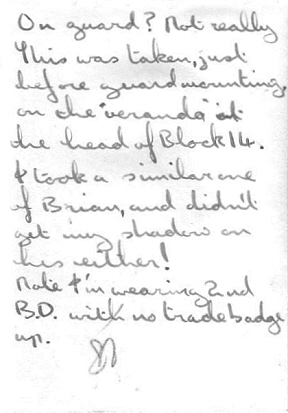 On guard? Not really
This was taken, just
before guard mounting,
on the "veranda" at
the head of Block 14.
I took a similar one
of Brian, and didn't
get my shadow on
his either!
Note I'm wearing 2nd
B.D. with no trade badge
up.